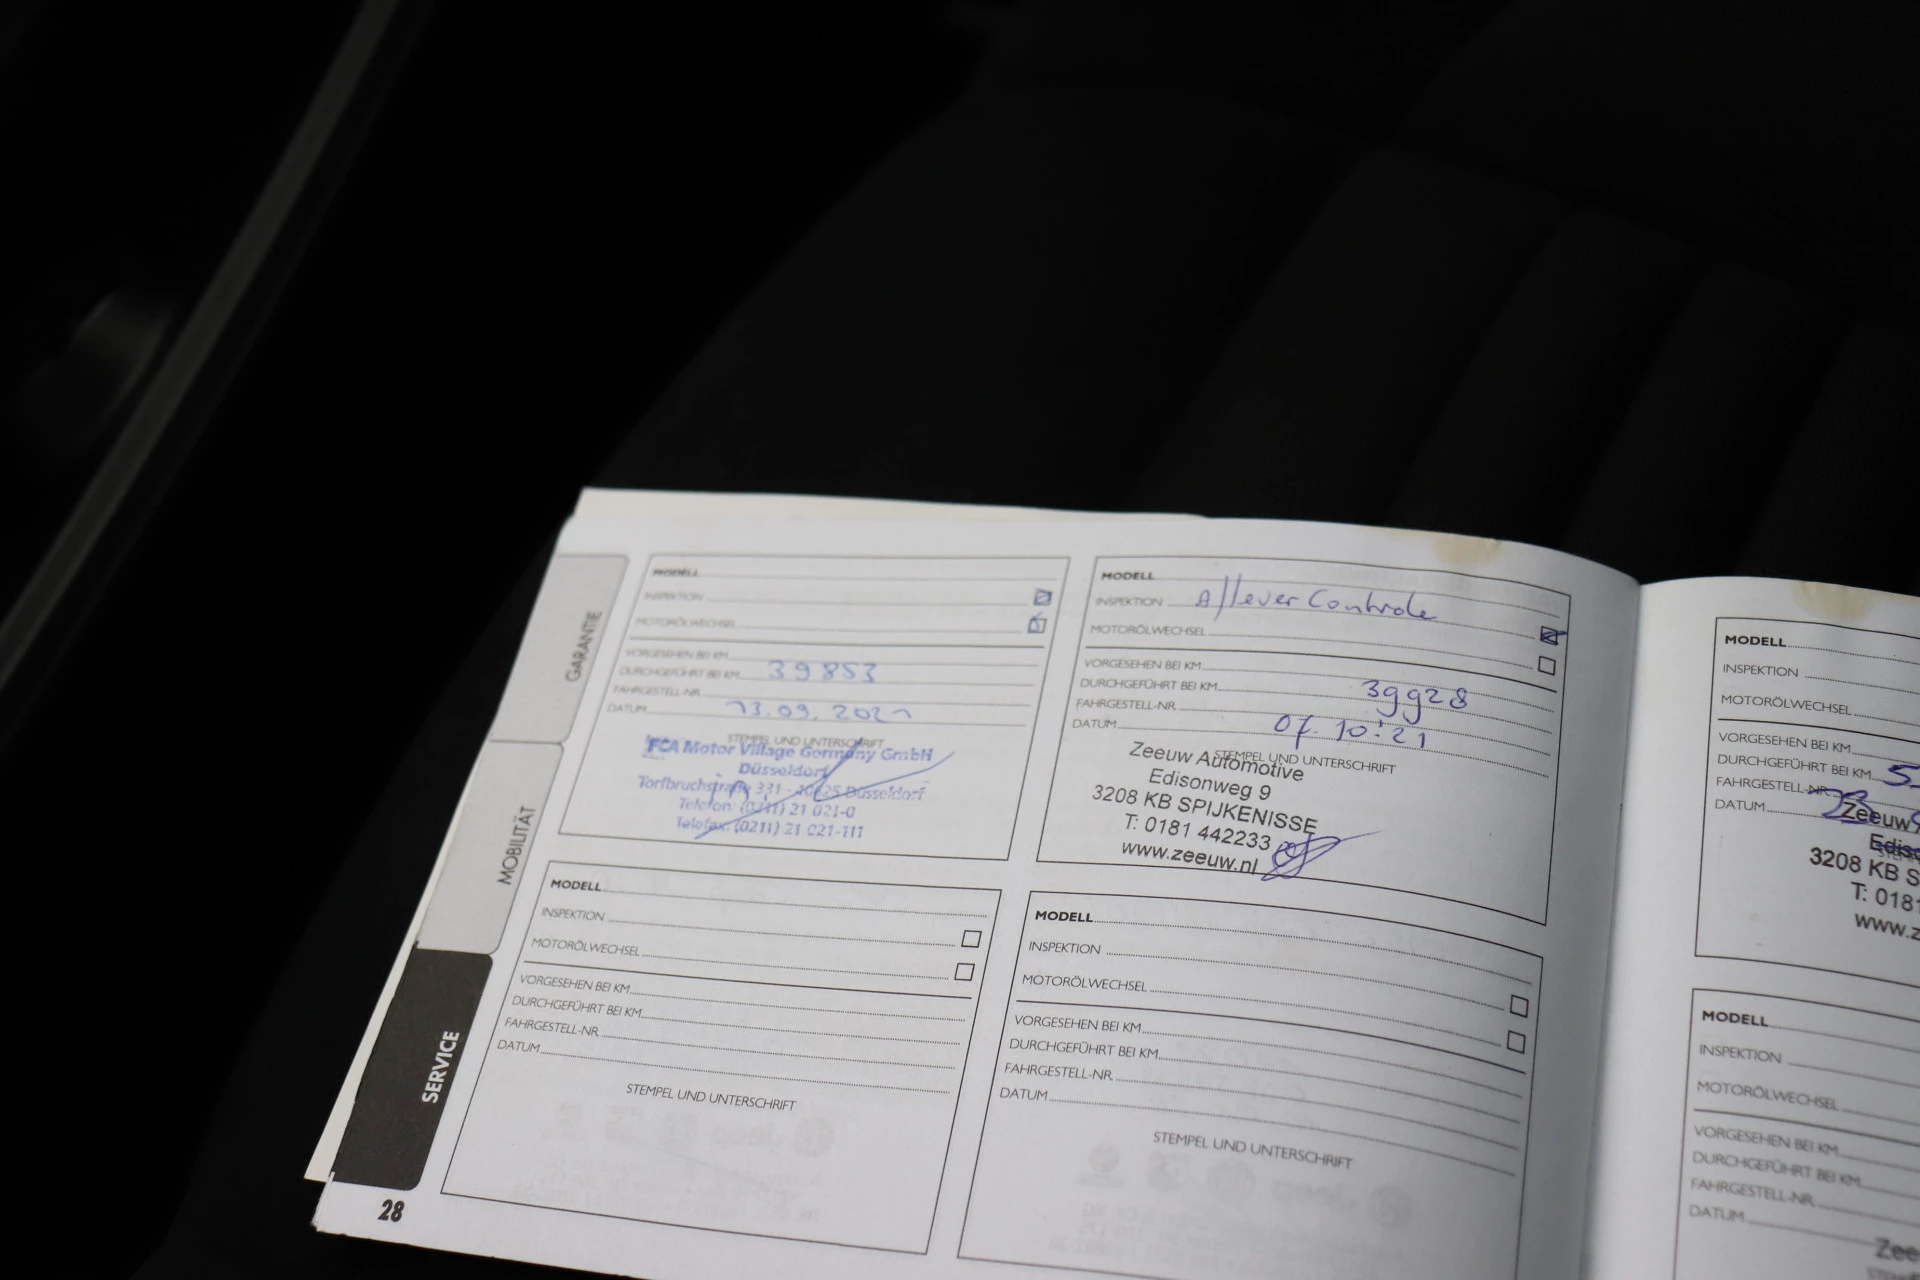 GARANTIE
MOBILITÄT
SERVICE
MODELL
INSPEKTION
MOTORÖLWECHSEL
VORGESEHEN BEI KM
DURCHGEFÜHRT BEI KM 39853
FAHRGESTELL-NR.
DATUM 13.09.2021
STEMPEL UND UNTERSCHRIFT
FCA Motor Village Germany GmbH
Düsseldorf
Torfbruchstraße 331 · 40625 Düsseldorf
Telefon: (0211) 21 021-0
Telefax: (0211) 21 021-111
MODELL
INSPEKTION Aflever Controle
MOTORÖLWECHSEL
VORGESEHEN BEI KM
DURCHGEFÜHRT BEI KM 39928
FAHRGESTELL-NR.
DATUM 07.10:21
STEMPEL UND UNTERSCHRIFT
Zeeuw Automotive
Edisonweg 9
3208 KB SPIJKENISSE
T: 0181 442233
www.zeeuw.nl
MODELL
INSPEKTION
MOTORÖLWECHSEL
VORGESEHEN BEI KM
DURCHGEFÜHRT BEI KM
FAHRGESTELL-NR.
DATUM
STEMPEL UND UNTERSCHRIFT
MODELL
INSPEKTION
MOTORÖLWECHSEL
VORGESEHEN BEI KM
DURCHGEFÜHRT BEI KM
FAHRGESTELL-NR.
DATUM
STEMPEL UND UNTERSCHRIFT
28
MODELL
INSPEKTION
MOTORÖLWECHSEL
VORGESEHEN BEI KM
DURCHGEFÜHRT BEI KM
FAHRGESTELL-NR.
DATUM
Zeeuw
3208 KB S
T: 0181
www.z
MODELL
INSPEKTION
MOTORÖLWECHSEL
VORGESEHEN BEI KM
DURCHGEFÜHRT BEI KM
FAHRGESTELL-NR.
DATUM
Zee